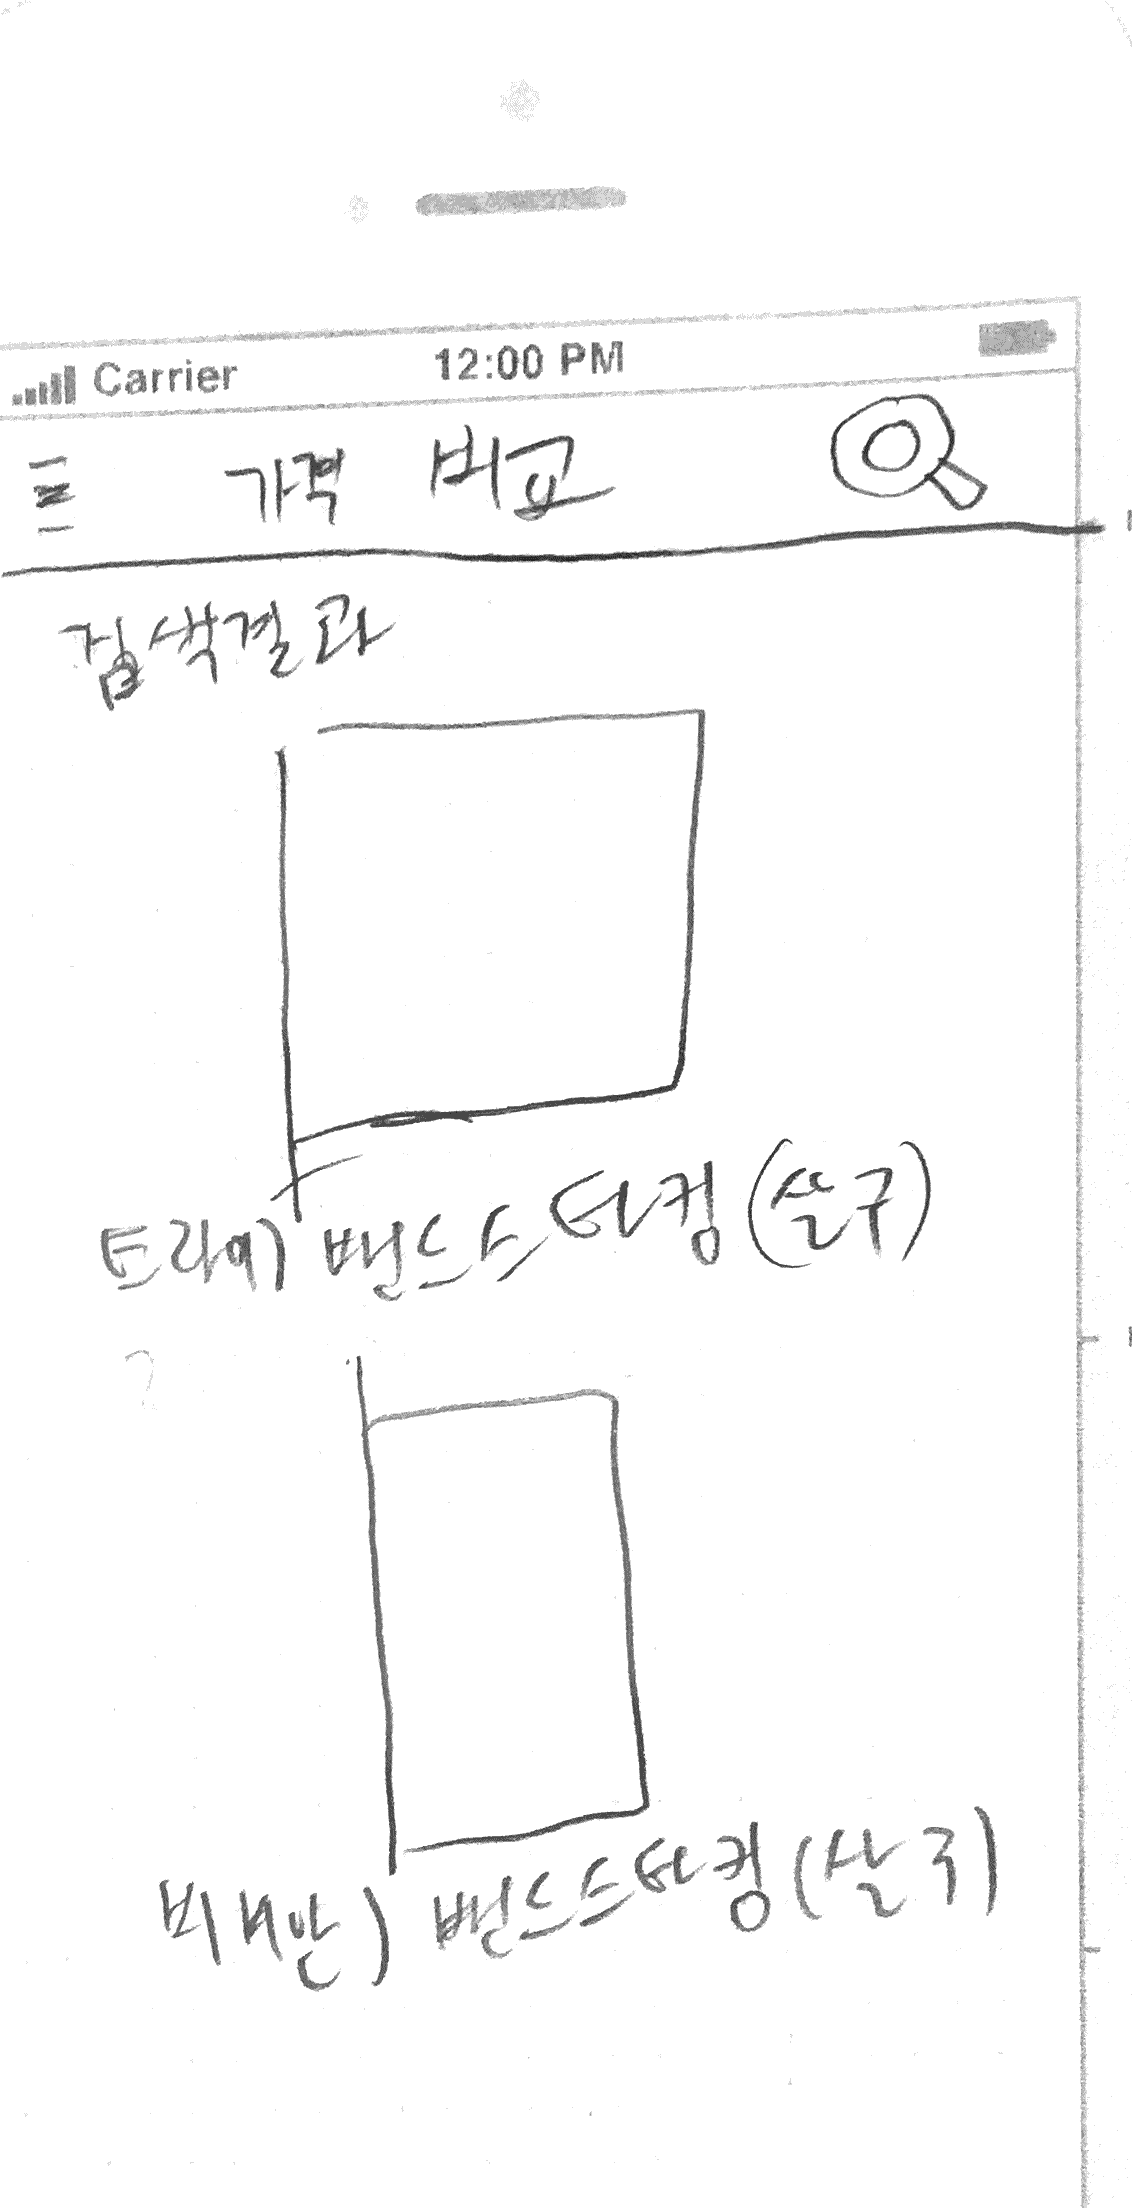 Carrier 12:00 PM
가격 비교
검색결과
트라이) 밴드스타킹(살구)
비비안) 밴드스타킹(살구)